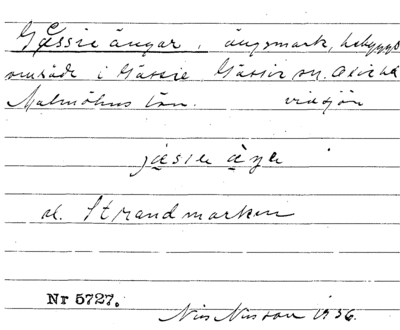 Gässie ängar, ängsmark, bebyggt
område i Gässie Gässie sn. Oxie hd
Malmöhus län. vid sjön
jäsie äŋa
el. Strandmarken
Nr 5727.
Nils Nilsson 1936.